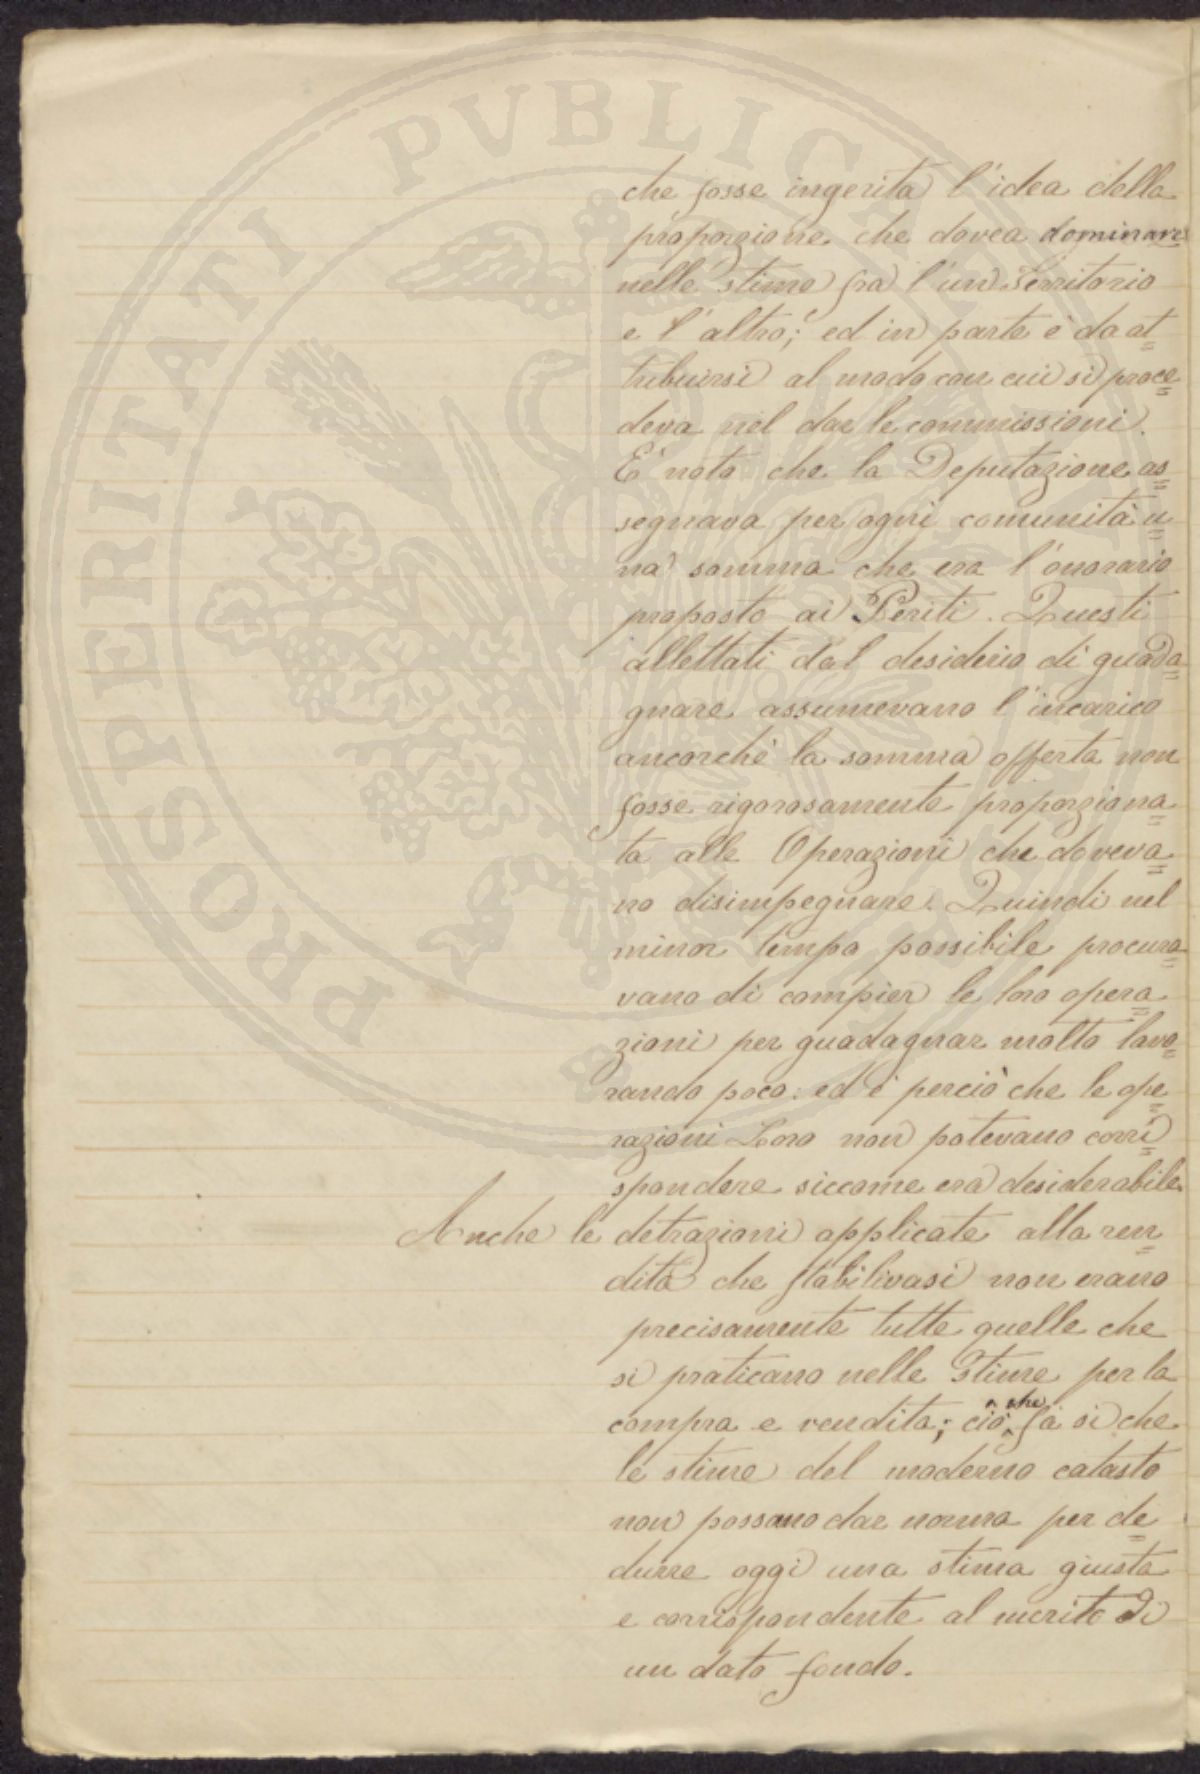 PROSPERITATI PVBLICAE AVGENDAE
che fosse ingerita l'idea della
proporzione che dovea dominare
nelle stime fra l'un Territorio
e l'altro; ed in parte è da at=
tribuirsi al modo con cui si proce=
deva nel dar le commissioni.
E' noto che la Deputazione as=
segnava per ogni comunità u=
na somma che era l'onorario
proposto ai Periti. Questi
allettati dal desiderio di guada=
gnare assumevano l'incarico
ancorchè la somma offerta non
fosse rigorosamente proporziona=
ta alle Operazioni che doveva=
no disimpegnare. Quindi nel
minor tempo possibile procura=
vano di compier le loro opera=
zioni per guadagnar molto lavo=
rando poco: ed è perciò che le ope=
razioni Loro non potevano corri=
spondere siccome era desiderabile
Anche le detrazioni applicate alla ren=
dita che stabilivasi non erano
precisamente tutte quelle che
si praticano nelle Stime per la
compra e vendita; ciò che fa si che
le stime del moderno catasto
non possano dar norma per de=
durre oggi una stima giusta
e corrispondente al merito di
un dato fondo.